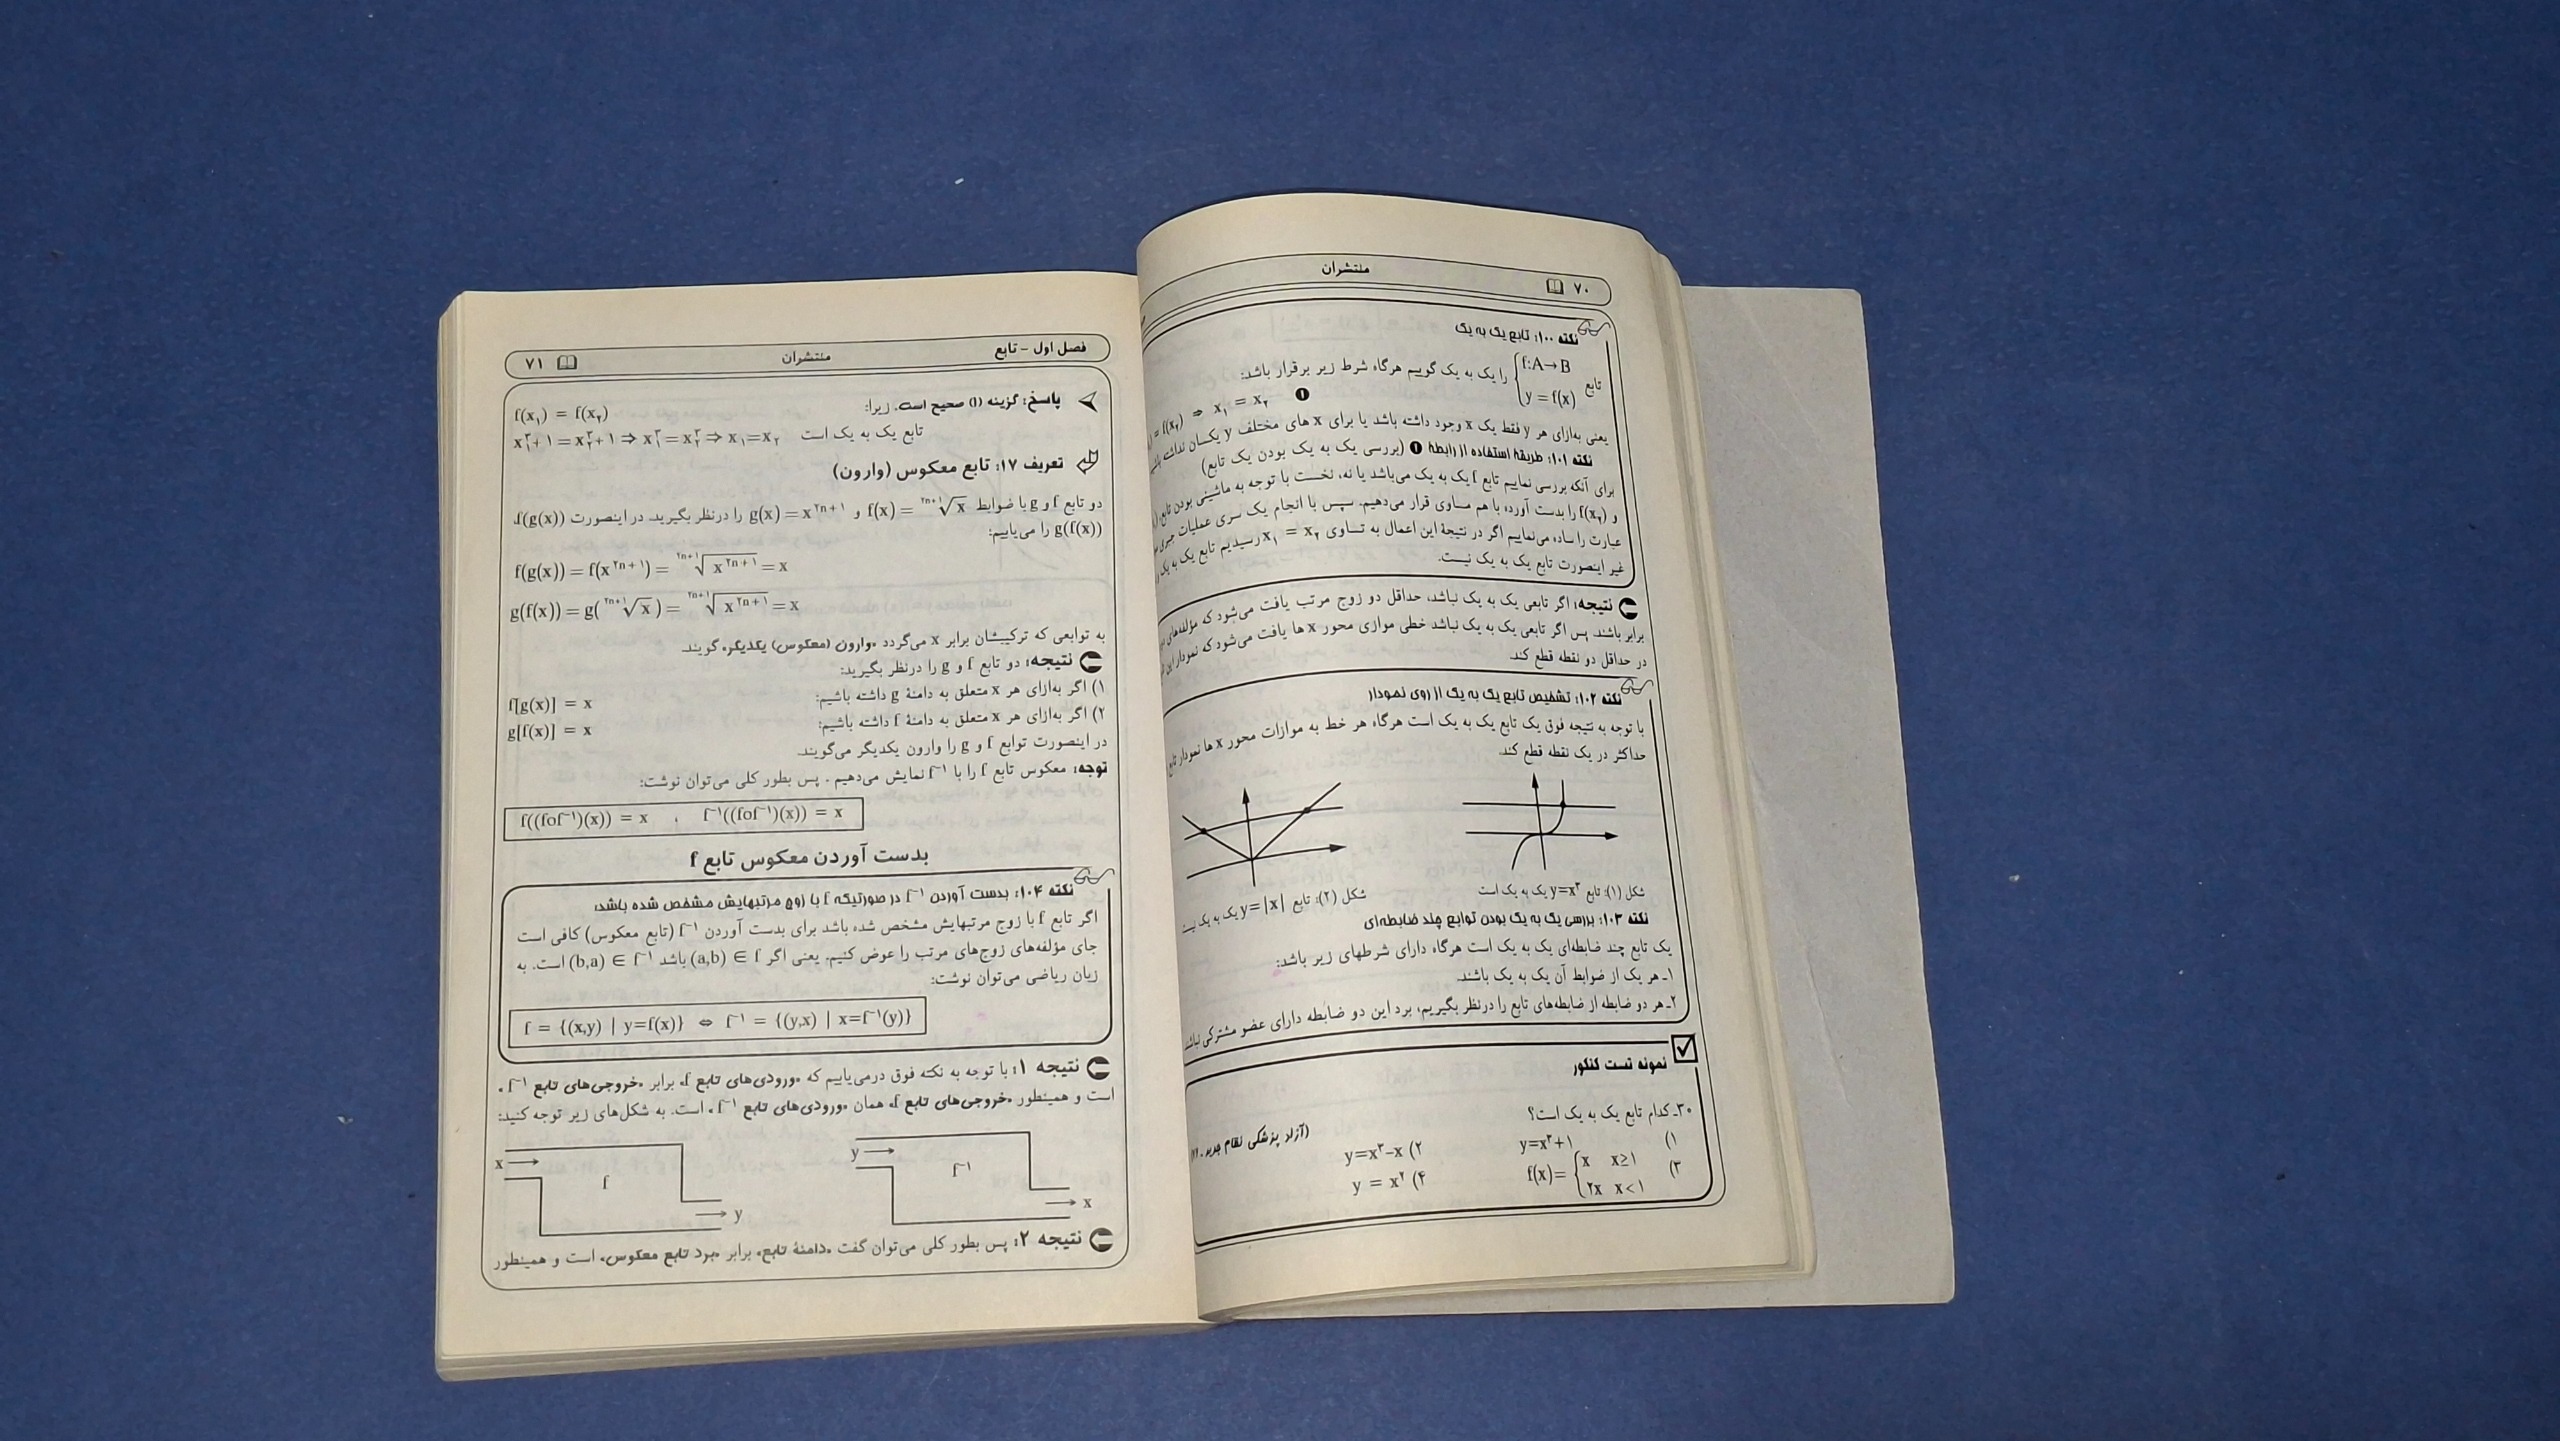 ۷۰ منتشران
نکته ۱۰۰: تابع یک به یک
تابع {f:A→B
y = f(x) را یک به یک گوییم هرگاه شرط زیر برقرار باشد:
= f(x۲) ⇒ x۱ = x۲ ❶
یعنی به‌ازای هر y فقط یک x وجود داشته باشد یا برای x های مختلف y یکسان نداشته
نکته ۱۰۱: طریقهٔ استفاده از رابطهٔ ❶ (بررسی یک به یک بودن یک تابع)
برای آنکه بررسی نماییم تابع f یک به یک می‌باشد یا نه، نخست با توجه به ماشینی بودن تابع
و f(x۲) را بدست آورده با هم مساوی قرار می‌دهیم. سپس با انجام یک سری عملیات جبری
عبارت را ساده می‌نماییم اگر در نتیجهٔ این اعمال به تساوی x۱ = x۲ رسیدیم تابع یک به یک
غیر اینصورت تابع یک به یک نیست.
نتیجه: اگر تابعی یک به یک نباشد، حداقل دو زوج مرتب یافت می‌شود که مؤلفه‌های
برابر باشند. پس اگر تابعی یک به یک نباشد خطی موازی محور x ها یافت می‌شود که نمودار این
در حداقل دو نقطه قطع کند.
نکته ۱۰۲: تشخیص تابع یک به یک از روی نمودار
با توجه به نتیجه فوق یک تابع یک به یک است هرگاه هر خط به موازات محور x ها نمودار تابع
حداکثر در یک نقطه قطع کند.
شکل (۱): تابع y=x۳ یک به یک است
شکل (۲): تابع y=|x| یک به یک نیست
نکته ۱۰۳: بررسی یک به یک بودن توابع چند ضابطه‌ای
یک تابع چند ضابطه‌ای یک به یک است هرگاه دارای شرطهای زیر باشد:
۱ـ هر یک از ضوابط آن یک به یک باشند.
۲ـ هر دو ضابطه از ضابطه‌های تابع را درنظر بگیریم، برد این دو ضابطه دارای عضو مشترکی نباشند
نمونه تست کنکور
۳۰ـ کدام تابع یک به یک است؟
(آزاد پزشکی نظام جدید ـ
۱) y=x۳+۱
۲) y=x۳−x
۳) f(x)= {x x≥۱
۲x x<۱
۴) y = x۲
فصل اول – تابع منتشران ۷۱
پاسخ: گزینه (۱) صحیح است. زیرا: f(x۱) = f(x۲)
x۱۳+۱ = x۲۳+۱ ⇒ x۱۳ = x۲۳ ⇒ x۱=x۲ تابع یک به یک است
تعریف ۱۷: تابع معکوس (وارون)
دو تابع f و g با ضوابط f(x) = ۲n+۱√x و g(x) = x۲n+۱ را درنظر بگیرید. در اینصورت f(g(x)) ،
g(f(x)) را می‌یابیم:
f(g(x)) = f(x۲n+۱) = ۲n+۱√x۲n+۱ = x
g(f(x)) = g(۲n+۱√x) = ۲n+۱√x۲n+۱ = x
به توابعی که ترکیبشان برابر x می‌گردد «وارون (معکوس) یکدیگر» گویند.
نتیجه: دو تابع f و g را درنظر بگیرید:
۱) اگر به‌ازای هر x متعلق به دامنهٔ g داشته باشیم: f[g(x)] = x
۲) اگر به‌ازای هر x متعلق به دامنهٔ f داشته باشیم: g[f(x)] = x
در اینصورت توابع f و g را وارون یکدیگر می‌گویند.
توجه: معکوس تابع f را با f−۱ نمایش می‌دهیم . پس بطور کلی می‌توان نوشت:
f((fof−۱)(x)) = x ، f−۱((fof−۱)(x)) = x
بدست آوردن معکوس تابع f
نکته ۱۰۴: بدست آوردن f−۱ در صورتیکه f با زوج مرتبهایش مشخص شده باشد:
اگر تابع f با زوج مرتبهایش مشخص شده باشد برای بدست آوردن f−۱ (تابع معکوس) کافی است
جای مؤلفه‌های زوج‌های مرتب را عوض کنیم. یعنی اگر (a,b) ∈ f باشد (b,a) ∈ f−۱ است. به
زبان ریاضی می‌توان نوشت:
f = {(x,y) | y=f(x)} ⇔ f−۱ = {(y,x) | x=f−۱(y)}
نتیجه ۱: با توجه به نکته فوق درمی‌یابیم که «ورودی‌های تابع f» برابر «خروجی‌های تابع f−۱»
است و همینطور «خروجی‌های تابع f» همان «ورودی‌های تابع f−۱» است. به شکل‌های زیر توجه کنید:
x f y
y f−۱ x
نتیجه ۲: پس بطور کلی می‌توان گفت «دامنهٔ تابع» برابر «برد تابع معکوس» است و همینطور